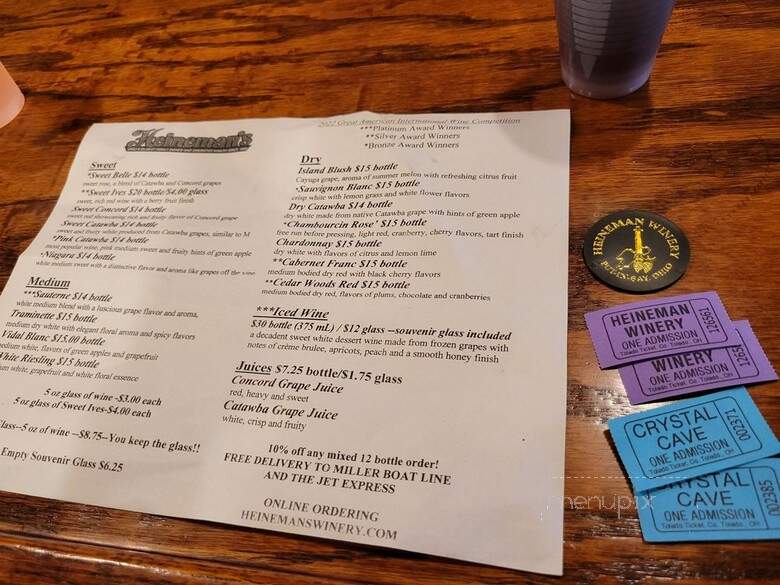 Heineman's
Sweet
*Sweet Belle $14 bottle
sweet rose, a blend of Catawba and Concord grapes
**Sweet Ives $20 bottle/$4.00 glass
sweet, rich red wine with a berry fruit finish
Sweet Concord $14 bottle
sweet red showcasing rich and fruity flavor of Concord grape
Sweet Catawba $14 bottle
sweet and fruity white produced from Catawba grapes, similar to M
*Pink Catawba $14 bottle
most popular wine, pink medium sweet and fruity hints of green apple
*Niagara $14 bottle
white medium sweet with a distinctive flavor and aroma like grapes off the vine
Medium
***Sauterne $14 bottle
white medium blend with a luscious grape flavor and aroma,
Traminette $15 bottle
medium dry white with elegant floral aroma and spicy flavors
Vidal Blanc $15.00 bottle
medium white, flavors of green apples and grapefruit
White Riesling $15 bottle
white, grapefruit and white floral essence
5 oz glass of wine --$3.00 each
5 oz glass of Sweet Ives-$4.00 each
Glass--5 oz of wine --$8.75--You keep the glass!!
Empty Souvenir Glass $6.25
2022 Great American International Wine Competition
***Platinum Award Winners
**Silver Award Winners
*Bronze Award Winners
Dry
Island Blush $15 bottle
Cayuga grape, aroma of summer melon with refreshing citrus fruit
*Sauvignon Blanc $15 bottle
crisp white with lemon grass and white flower flavors
Dry Catawba $14 bottle
dry white made from native Catawba grape with hints of green apple
*Chambourcin Rose' $15 bottle
free run before pressing, light red, cranberry, cherry flavors, tart finish
Chardonnay $15 bottle
dry white with flavors of citrus and lemon lime
**Cabernet Franc $15 bottle
medium bodied dry red with black cherry flavors
**Cedar Woods Red $15 bottle
medium bodied dry red, flavors of plums, chocolate and cranberries
***Iced Wine
$30 bottle (375 ml.) / $12 glass --souvenir glass included
a decadent sweet white dessert wine made from frozen grapes with
notes of crème brulee, apricots, peach and a smooth honey finish
Juices $7.25 bottle/$1.75 glass
Concord Grape Juice
red, heavy and sweet
Catawba Grape Juice
white, crisp and fruity
10% off any mixed 12 bottle order!
FREE DELIVERY TO MILLER BOAT LINE
AND THE JET EXPRESS
ONLINE ORDERING
HEINEMANSWINERY.COM
HEINEMAN WINERY
PUT-IN-BAY, OHIO
HEINEMAN
WINERY
ONE ADMISSION
Toledo Ticket Co. Toledo, OH
WINERY
ONE ADMISSION
Toledo Ticket Co. Toledo, OH
CRYSTAL
CAVE
ONE ADMISSION
Toledo Ticket Co. Toledo, OH
002377
CRYSTAL
CAVE
ONE ADMISSION
Toledo Ticket Co. Toledo, OH
002385
menupix